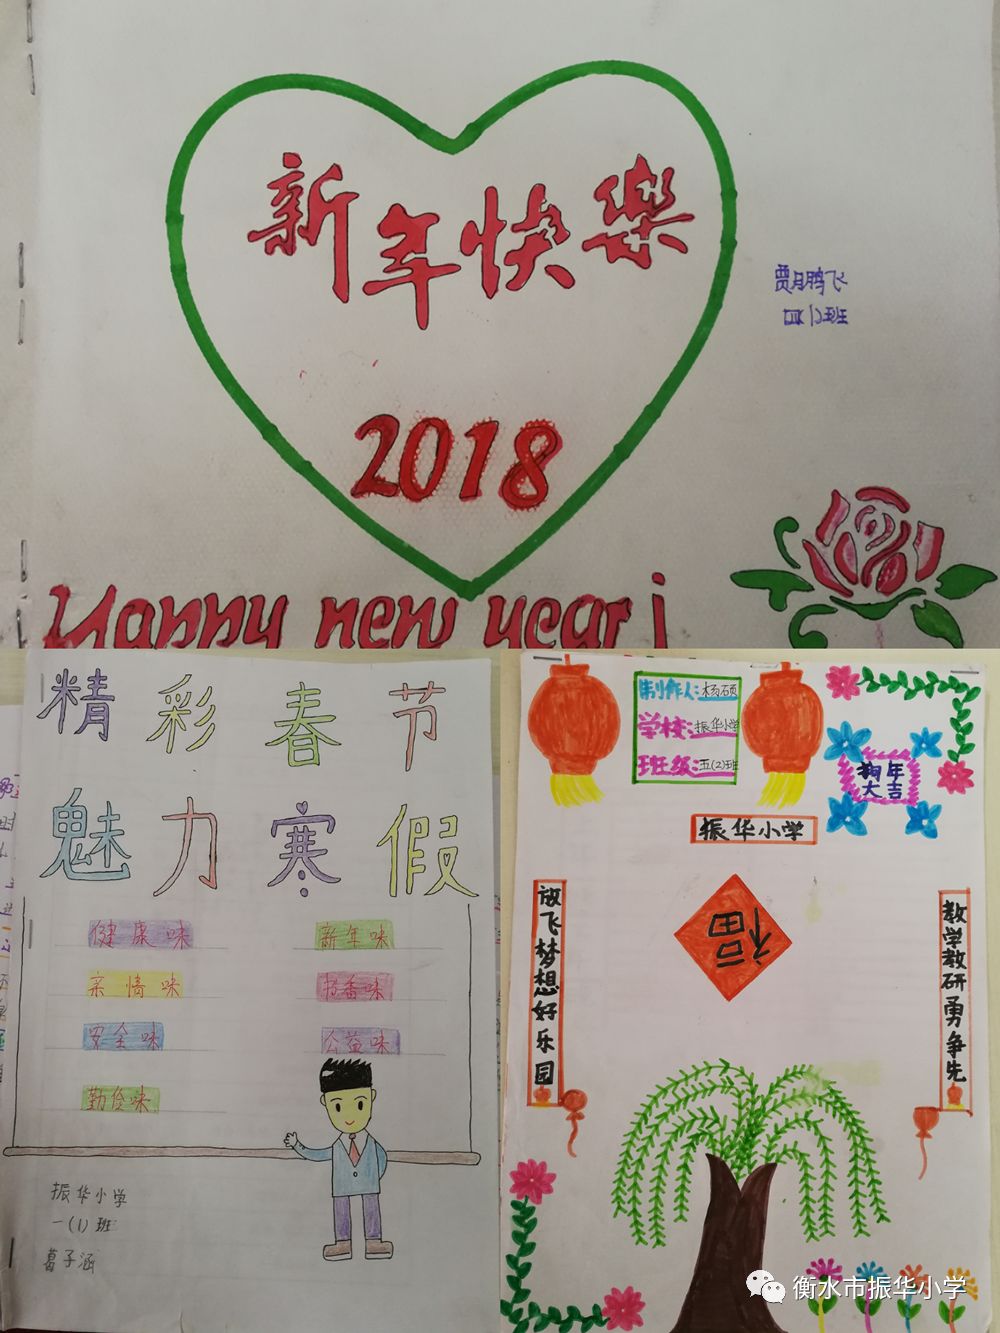 新年快樂
2018
贾月鹏飞
四(1)班
Happy new year!
精彩春节
魅力寒假
健康味
新年味
亲情味
书香味
安全味
公益味
勤俭味
振华小学
一(1)班
葛子涵
制作人:杨硕
学校:振华小学
班级:五(2)班
狗年
大吉
振华小学
福
放飞梦想好乐园
教学教研勇争先
衡水市振华小学